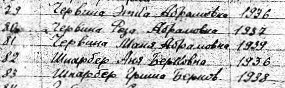 79 Червина Эмма Абрамовна 1936
80 Червина Роза Абрамовна 1937
81 Червина Маня Абрамовна 1939
82 Шпарбер Аня Берковна 1936
83 Шпарбер Гриша Берков 1938